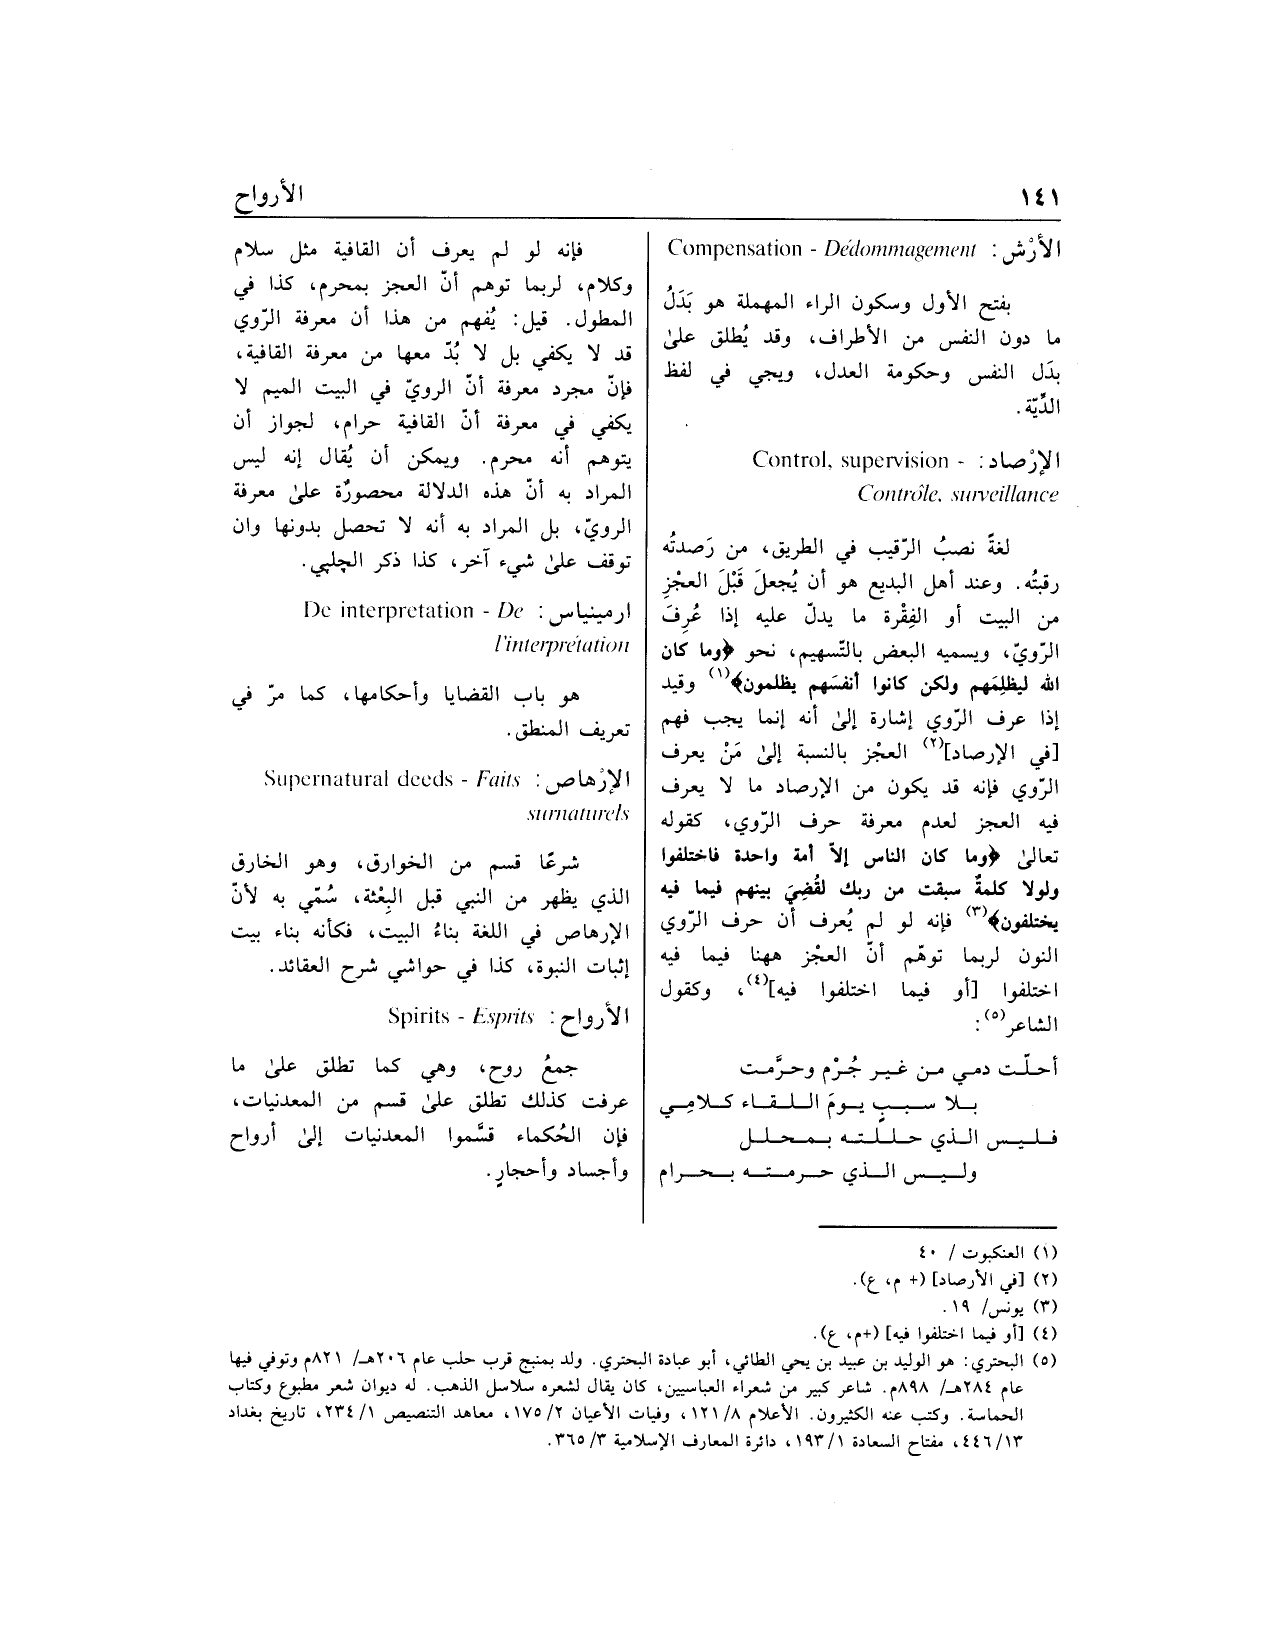 ١٤١
الأرواح
الأَرْش: Compensation - Dédommagement
بفتح الأول وسكون الراء المهملة هو بَدَلُ
ما دون النفس من الأطراف، وقد يُطلق علىٰ
بدَل النفس وحكومة العدل، ويجي في لفظ
الدِّيّة.
الإرْصاد: Control, supervision -
Contrôle, surveillance
لغةً نصبُ الرّقيب في الطريق، من رَصدتُه
رقبتُه. وعند أهل البديع هو أن يُجعلَ قَبْلَ العجْزِ
من البيت أو الفِقْرة ما يدلّ عليه إذا عُرِفَ
الرّويّ، ويسميه البعض بالتّسهيم، نحو ﴿وما كان
الله ليظلِمَهم ولكن كانوا أنفسَهم يظلمون﴾(١) وقيد
إذا عرف الرّوي إشارة إلىٰ أنه إنما يجب فهم
[في الإرصاد](٢) العجْز بالنسبة إلىٰ مَنْ يعرف
الرّوي فإنه قد يكون من الإرصاد ما لا يعرف
فيه العجز لعدم معرفة حرف الرّوي، كقوله
تعالىٰ ﴿وما كان الناس إلاّ أمة واحدة فاختلفوا
ولولا كلمةٌ سبقت من ربك لقُضِيَ بينهم فيما فيه
يختلفون﴾(٣) فإنه لو لم يُعرف أن حرف الرّوي
النون لربما توهّم أنّ العجْز ههنا فيما فيه
اختلفوا [أو فيما اختلفوا فيه](٤)، وكقول
الشاعر(٥):
أحلّت دمي من غير جُرْم وحرَّمت
بلا سببٍ يومَ اللقاء كلامِي
فليس الذي حللته بمحلل
وليس الذي حرمته بحرام
فإنه لو لم يعرف أن القافية مثل سلام
وكلام، لربما توهم أنّ العجز بمحرم، كذا في
المطول. قيل: يُفهم من هذا أن معرفة الرّوي
قد لا يكفي بل لا بُدّ معها من معرفة القافية،
فإنّ مجرد معرفة أنّ الرويّ في البيت الميم لا
يكفي في معرفة أنّ القافية حرام، لجواز أن
يتوهم أنه محرم. ويمكن أن يُقال إنه ليس
المراد به أنّ هذه الدلالة محصورٌة علىٰ معرفة
الرويّ، بل المراد به أنه لا تحصل بدونها وان
توقف علىٰ شيء آخر، كذا ذكر الچلپي.
ارمينياس: De interpretation - De
l'interprétation
هو باب القضايا وأحكامها، كما مرّ في
تعريف المنطق.
الإرْهاص: Supernatural deeds - Faits
surnaturels
شرعًا قسم من الخوارق، وهو الخارق
الذي يظهر من النبي قبل البِعْثة، سُمّي به لأنّ
الإرهاص في اللغة بناءُ البيت، فكأنه بناء بيت
إثبات النبوة، كذا في حواشي شرح العقائد.
الأرواح: Spirits - Esprits
جمعُ روح، وهي كما تطلق علىٰ ما
عرفت كذلك تطلق علىٰ قسم من المعدنيات،
فإن الحُكماء قسَّموا المعدنيات إلىٰ أرواح
وأجساد وأحجارٍ.
(١) العنكبوت / ٤٠
(٢) [في الأرصاد] (+ م، ع).
(٣) يونس/ ١٩.
(٤) [أو فيما اختلفوا فيه] (+م، ع).
(٥) البحتري: هو الوليد بن عبيد بن يحي الطائي، أبو عبادة البحتري. ولد بمنبج قرب حلب عام ٢٠٦هـ/ ٨٢١م وتوفي فيها
عام ٢٨٤هـ/ ٨٩٨م. شاعر كبير من شعراء العباسيين، كان يقال لشعره سلاسل الذهب. له ديوان شعر مطبوع وكتاب
الحماسة. وكتب عنه الكثيرون. الأعلام ٨/ ١٢١، وفيات الأعيان ٢/ ١٧٥، معاهد التنصيص ١/ ٢٣٤، تاريخ بغداد
١٣/ ٤٤٦، مفتاح السعادة ١/ ١٩٣، دائرة المعارف الإسلامية ٣/ ٣٦٥.